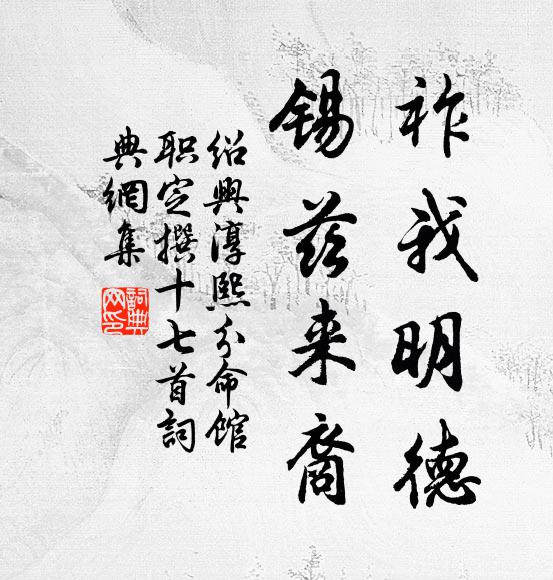 祚我明德
锡兹来裔
绍兴淳熙分命馆
职定撰十七首词
典网集
词典网印